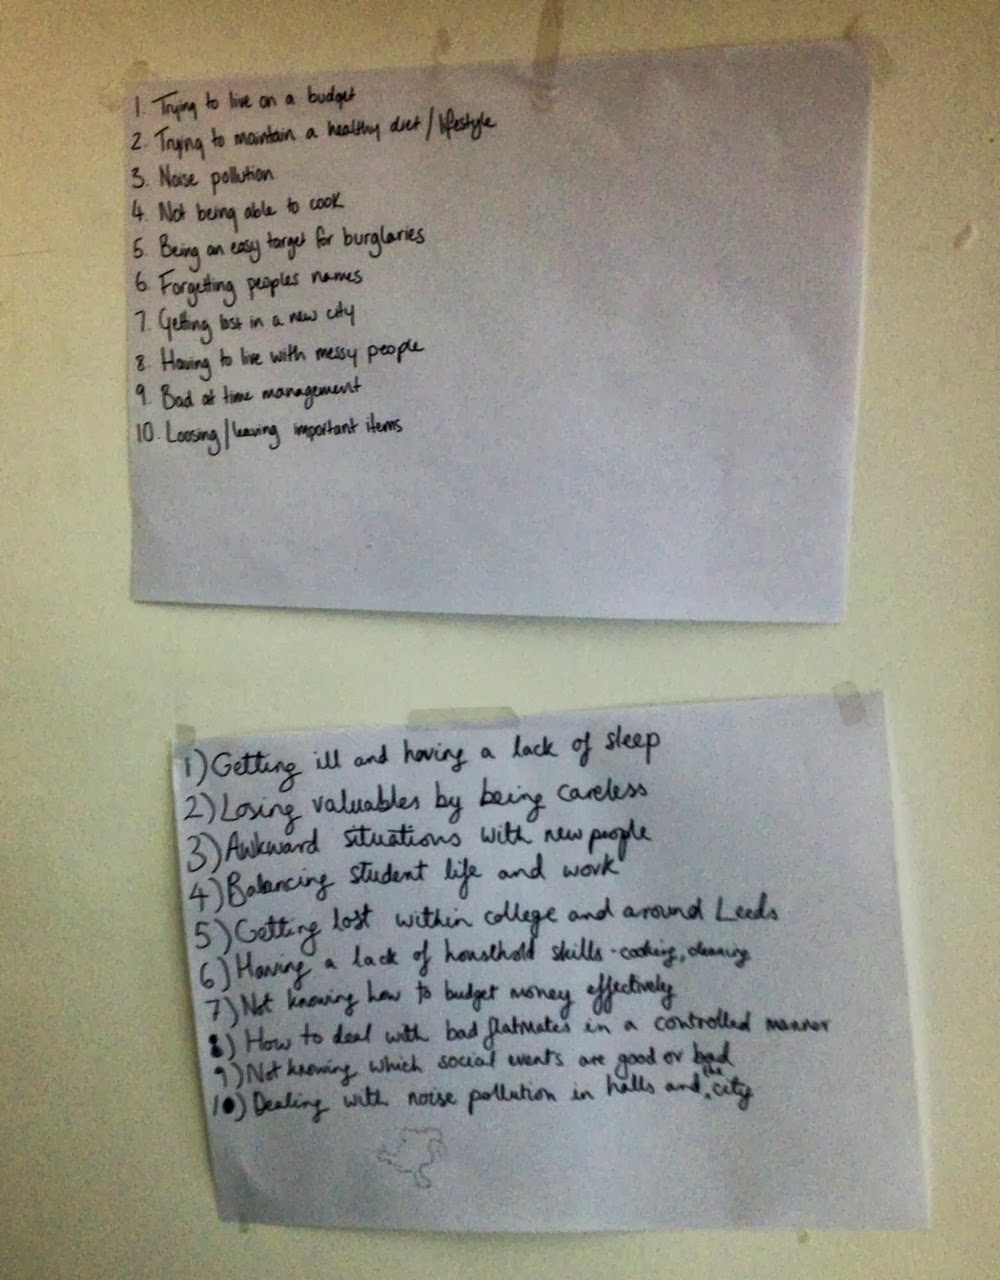 1. Trying to live on a budget
2. Trying to maintain a healthy diet/lifestyle
3. Noise pollution
4. Not being able to cook
5. Being an easy target for burglaries
6. Forgetting peoples names
7. Getting lost in a new city
8. Having to live with messy people
9. Bad at time management
10. Loosing/leaving important items
1) Getting ill and having a lack of sleep
2) Losing valuables by being careless
3) Awkward situations with new people
4) Balancing student life and work
5) Getting lost within college and around Leeds
6) Having a lack of household skills - cooking, cleaning
7) Not knowing how to budget money effectively
8) How to deal with bad flatmates in a controlled manner
9) Not knowing which social events are good or bad
10) Dealing with noise pollution in halls and the city